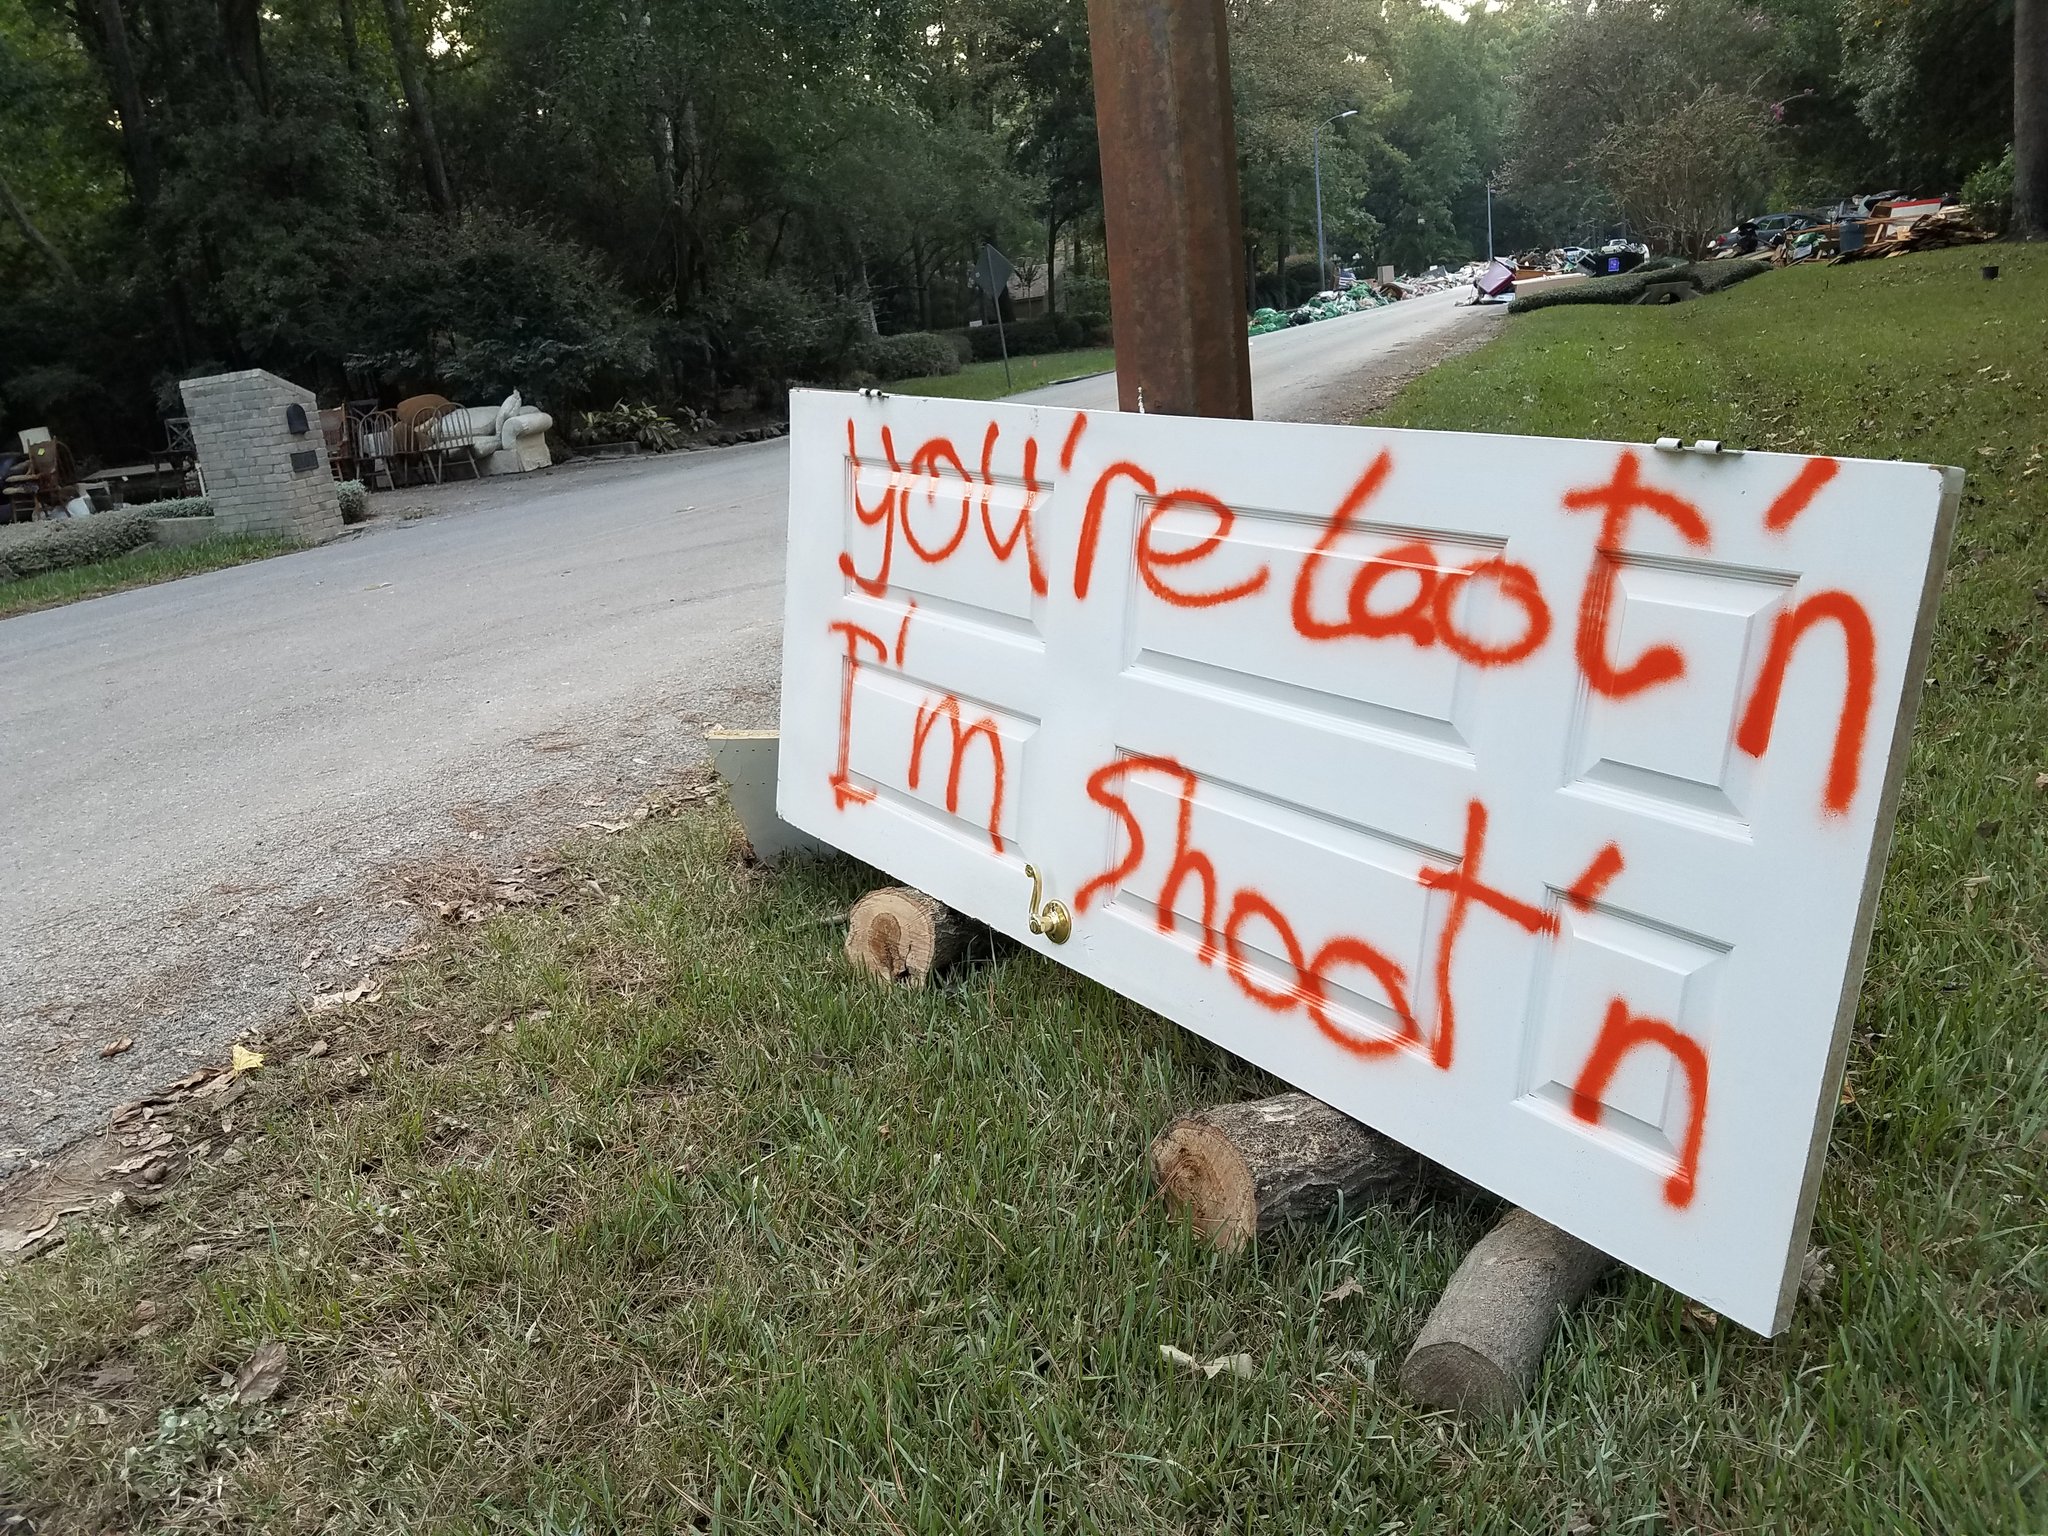 you're loot'n
I'm shoot'n